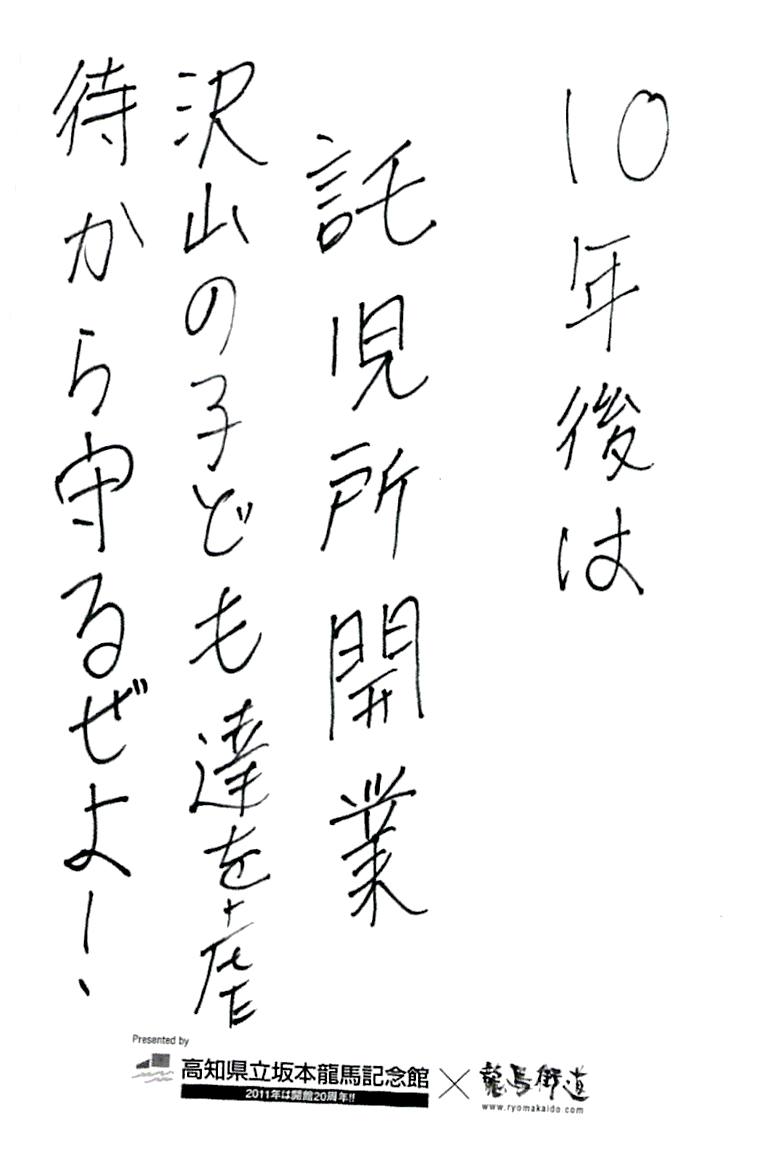 10年後は
託児所開業
沢山の子ども達を虐
待から守るぜよー、
Presented by
高知県立坂本龍馬記念館
2011年は開館20周年!!
×
龍馬街道
www.ryomakaido.com